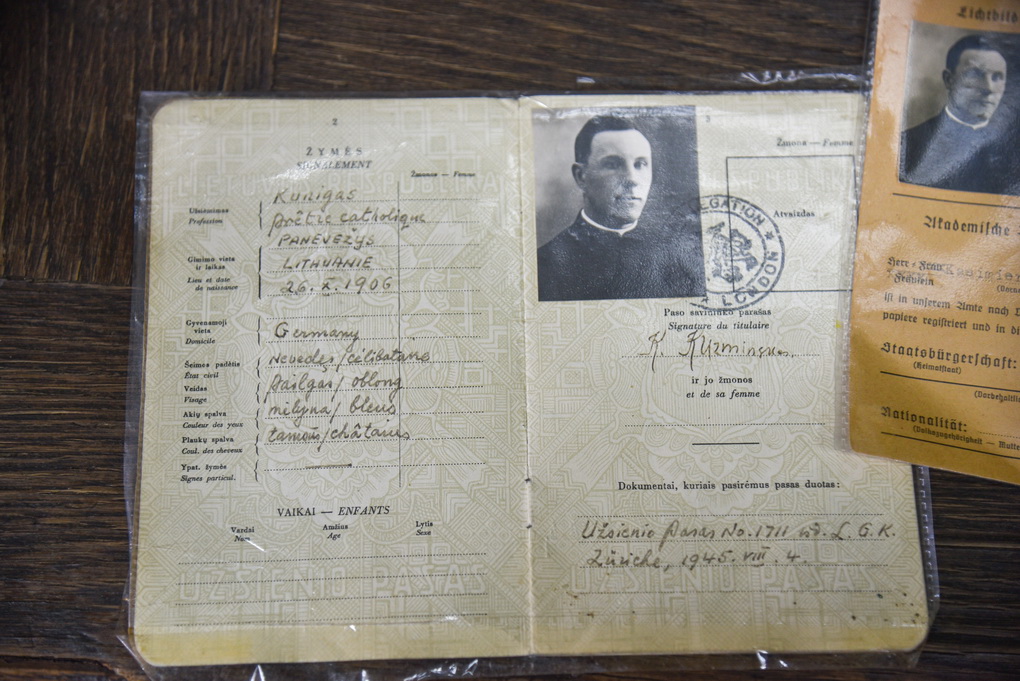 2
ŽYMĖS
SIGNALEMENT
Žmona — Femme
LIETUVOS RESPUBLIKA
Užsiėmimas
Profession
Kunigas
prêtre catholique
Gimimo vieta
ir laikas
Lieu et date
de naissance
PANEVĖŽYS
LITHUANIE
26. X. 1906
Gyvenamoji
vieta
Domicile
Germany
Šeimos padėtis
État civil
nevedęs/célibataire
Veidas
Visage
pailgas/oblong
Akių spalva
Couleur des yeux
mėlyna/bleus
Plaukų spalva
Coul. des cheveux
tamsūs/châtains
Ypat. žymės
Signes particul.
VAIKAI — ENFANTS
Vardai
Nom
Amžius
Age
Lytis
Sexe
UŽSIENIO PASAS
3
Žmona — Femme
Atvaizdas
LEGATION
LONDON
Paso savininko parašas
Signature du titulaire
K. Kuzminskas
ir jo žmonos
et de sa femme
Dokumentai, kuriais pasirėmus pasas duotas:
Užsienio pasas No. 1711 išd. L. G. K.
Züriche, 1945. VIII. 4.
UŽSIENIO PASAS
Lichtbild
Akademische
Herr - Frau
Fräulein
Kasimier
ist in unserem Amte nach
papiere registriert und in di
Staatsbürgerschaft:
(Heimatstaat)
Nationalität:
(Volkszugehörigkeit — Mutte